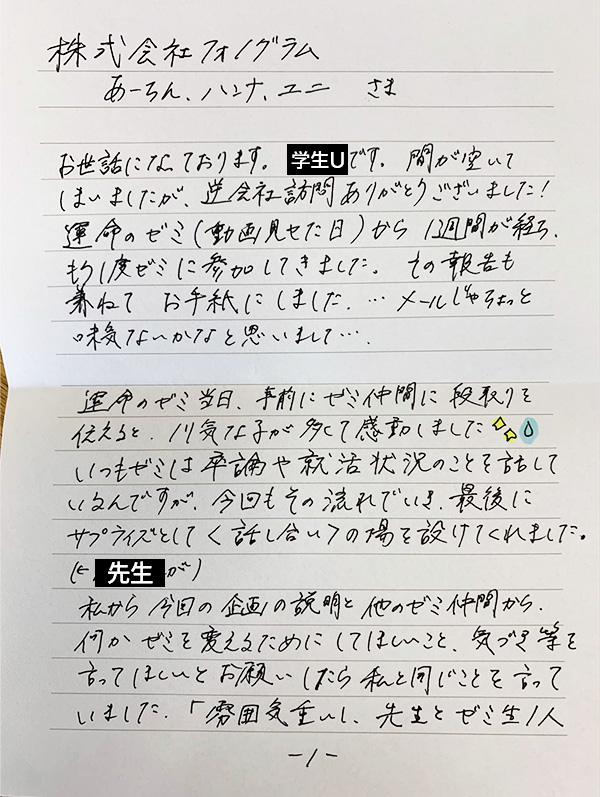 株式会社フォノグラム
あーちん、ハンナ、ユニ さま
お世話になっております。学生Uです。間が空いて
しまいましたが、逆会社訪問ありがとうございました！
運命のゼミ(動画見せた日)から 1週間が経ち、
もう1度ゼミに参加してきました。その報告も
兼ねて お手紙にしました.… メールじゃちょっと
味気ないかなと思いまして….
運命のゼミ当日、事前にゼミ仲間に段取りを
伝えると、乗り気な子が多くて感動しました
いつもゼミは卒論や就活状況のことを話して
いるんですが、今回もその流れでいき、最後に
サプライズとして〈話し合い〉の場を設けてくれました。
(← 先生が)
私から今回の企画の説明と他のゼミ仲間から、
何かゼミを変えるためにしてほしいこと、気づき等を
言ってほしいとお願いしたら私と同じことを言って
いました.「雰囲気重いし、先生とゼミ生1人
-1-